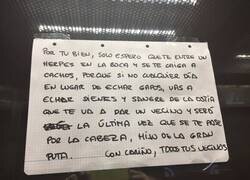 POR TU BIEN, SOLO ESPERO QUE TE ENTRE UN
HERPES EN LA BOCA Y SE TE CAIGA A
CACHOS, PORQUE SI NO CUALQUIER DÍA
EN LUGAR DE ECHAR GAPOS, VAS A
ECHAR DIENTES Y SANGRE DE LA OSTIA
QUE TE VA A DAR UN VECINO Y SERÁ
LA ÚLTIMA VEZ QUE SE TE PASE
POR LA CABEZA, HIJO DE LA GRAN
PUTA. CON CARIÑO, TODOS TUS VECINOS